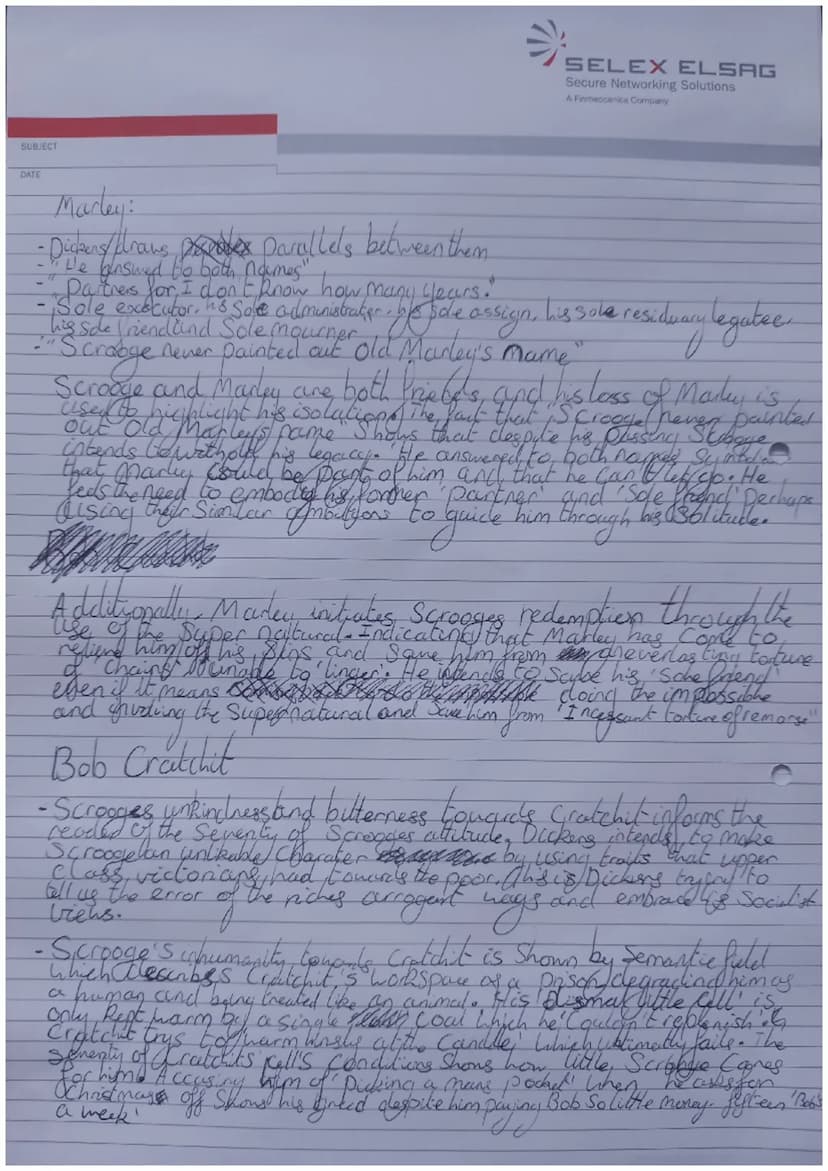 SELEX ELSAG
Secure Networking Solutions
A Finmeccanica Company
SUBJECT
DATE
Marley:
- Dickens draws parallels between them
- "He answered to both names"
- "Partners for I don't know how many years."
- "Sole executor, his sole administrator, his sole assign, his sole residuary legatee,
his sole friend and sole mourner
- "Scrooge never painted out Old Marley's name"
Scrooge and Marley are both friends, and his loss of Marley is
used to highlight his isolation. The fact that "Scrooge never painted
out Old Marley's name" shows that despite his passing Scrooge
intends to his legacy. 'He answered to both names'
that Marley could be part of him and that he can't let go. He
feels the need to embody his former 'partner' and 'Sole friend' perhaps
using their similar ambitions to guide him through his solitude.
Additionally, Marley initiates Scrooges redemption through the
use of the Super natural. Indicating that Marley has come to
relieve him of his sins and save him from an everlasting torture
of 'chains' unable to 'linger'. He intends to save his 'Sole friend'
even if it means doing the impossible
and the Supernatural and save him from 'Incessant torture of remorse"
Bob Cratchit
- Scrooges unkindness and bitterness towards Cratchit informs the
reader of the severity of Scrooges attitude, Dickens intends to make
Scrooge an unlikable charater by using traits that upper
class victorians had towards the poor, this is Dickens trying to
tell us the error of the riches arrogant ways and embrace his Socialist
views.
- Scrooge's inhumanity towards Cratchit is shown by semantic field
which describes Cratchit's workspace as a prison, degrading him as
a human and being treated like an animal. His 'dismal little cell' is
only kept warm by a single coal which he 'couldn't replenish'.
Cratchit trys to 'warm himself at the candle' which ultimatly fails. The
severity of Cratchits cell's conditions shows how little Scrooge cares
for him. Accusing him of 'Picking a mans pocket' when he asks for
Christmas off shows his greed despite him paying Bob so little money. fifteen 'Bob's
a week'